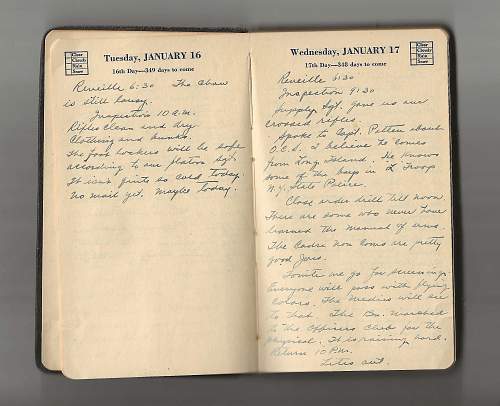 Clear
Cloudy
Rain
Snow
Tuesday, JANUARY 16
16th Day—349 days to come
Reveille 6:30 The Chow
is still lousy.
Inspection 10 A.M.
Rifles clean and dry
Clothing and bunks.
The foot lockers will be safe
according to our platoon Sgt.
It isn't quite so cold today.
No mail yet. Maybe today.
Clear
Cloudy
Rain
Snow
Wednesday, JANUARY 17
17th Day—348 days to come
Reveille 6:30
Inspection 9:30
Supply Sgt. gave us our
crossed rifles.
Spoke to Capt. Patten about
O.C.S. I believe he comes
from Long Island. He knows
some of the boys in L Troop
N.Y. State Police.
Close order drill till noon.
There are some who never have
learned the manual of arms.
The Cadre Non Coms are pretty
good Joes.
Tonite we go for screenings.
Everyone will pass with flying
colors. The Medics will see
to that. The Bn. marched
to the Officers Club for the
physical. It is raining hard.
Return 10 P.M.
Lites out.